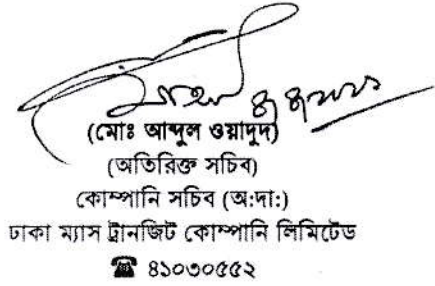 (মোঃ আব্দুল ওয়াদুদ)
(অতিরিক্ত সচিব)
কোম্পানি সচিব (অ:দা:)
ঢাকা ম্যাস ট্রানজিট কোম্পানি লিমিটেড
☎ ৪১০৩০৫৫২